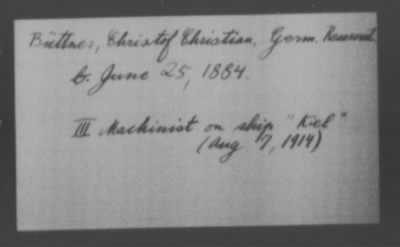 Büttner, Christof Christian, Germ. Reservist.
b. June 25, 1884.
III Machinist on ship "Kiel"
(Aug 7, 1914)